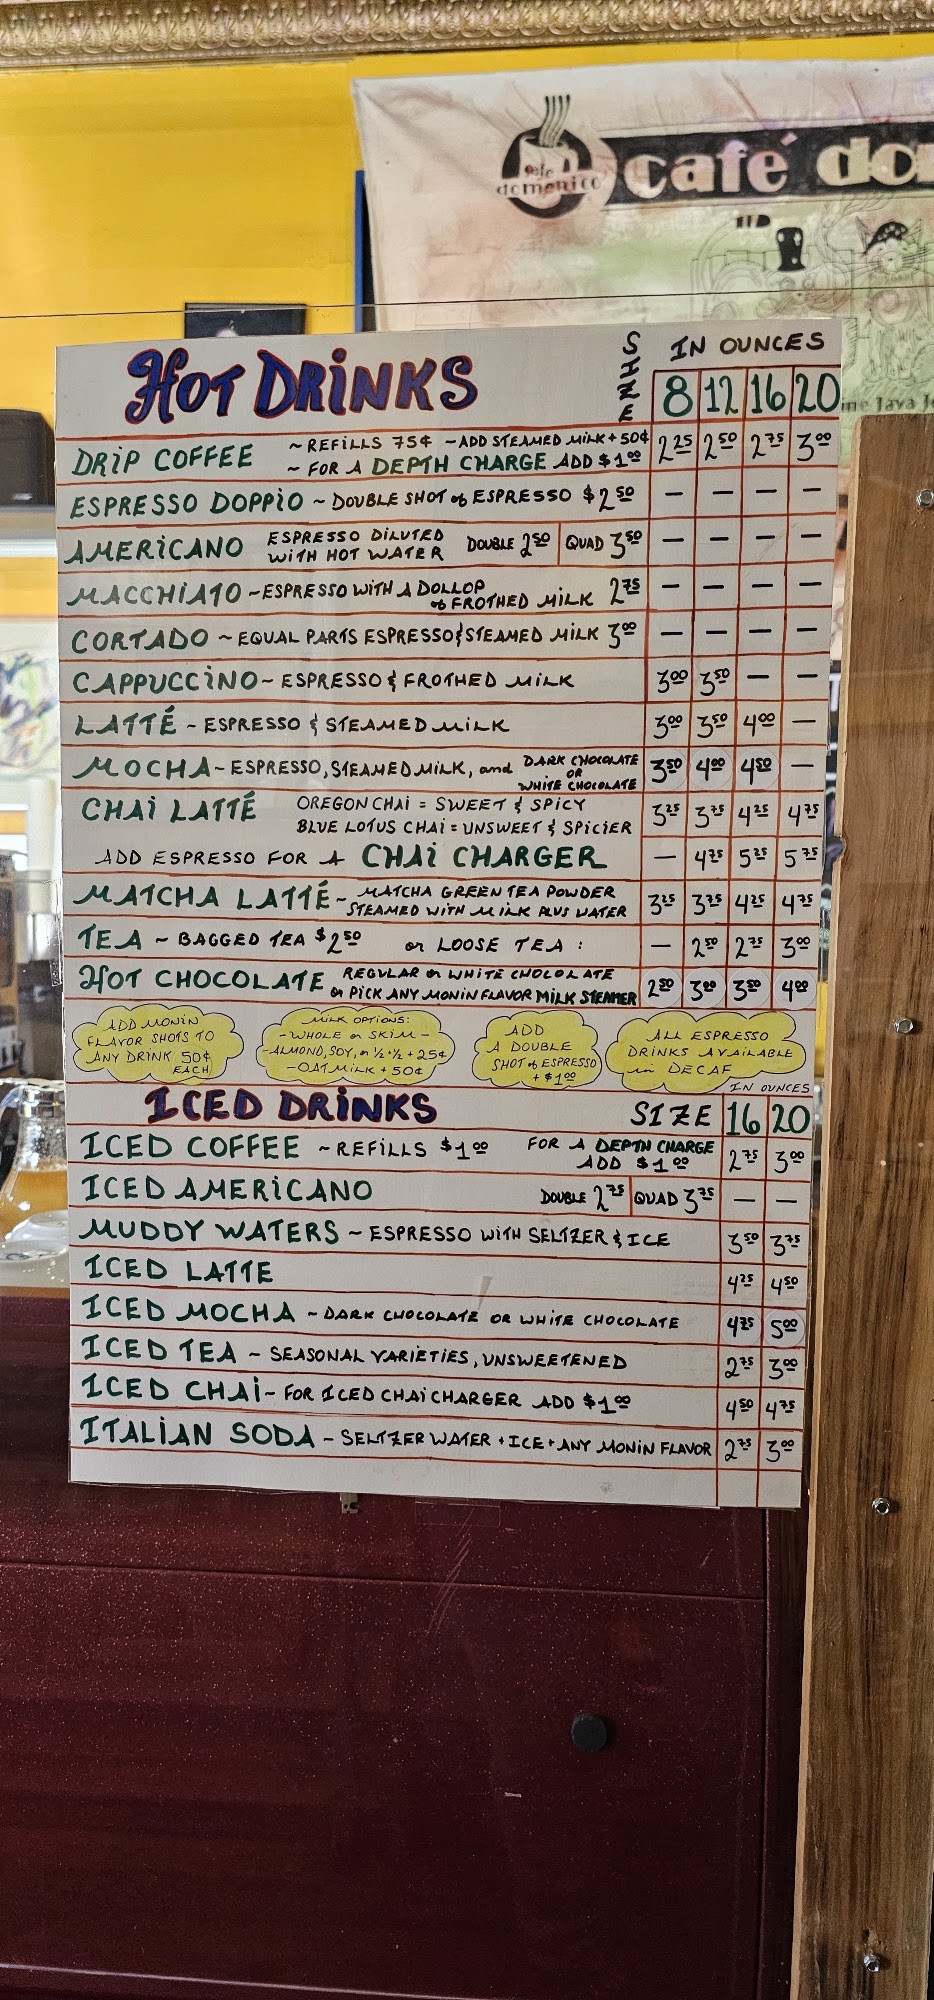 cafe
domenico
café do
me Java J
HOT DRINKS
SIZE
IN OUNCES
8 12 16 20
DRIP COFFEE ~REFILLS 75¢ ~ADD STEAMED MILK+50¢ 2 25 2 50 2 75 3 00
~FOR A DEPTH CHARGE ADD $1 00
ESPRESSO DOPPIO ~ DOUBLE SHOT of ESPRESSO $2 50 — — — —
AMERICANO ESPRESSO DILUTED WITH HOT WATER DOUBLE 2 50 QUAD 3 50 — — — —
MACCHIATO ~ESPRESSO WITH A DOLLOP of FROTHED MILK 2 75 — — — —
CORTADO ~ EQUAL PARTS ESPRESSO & STEAMED MILK 3 00 — — — —
CAPPUCCINO ~ ESPRESSO & FROTHED MILK 3 00 3 50 — —
LATTÉ - ESPRESSO & STEAMED MILK 3 00 3 50 4 00 —
MOCHA - ESPRESSO, STEAMED MILK, and DARK CHOCOLATE OR WHITE CHOCOLATE 3 50 4 00 4 50 —
CHAI LATTÉ OREGON CHAI = SWEET & SPICY 3 25 3 75 4 25 4 75
BLUE LOTUS CHAI = UNSWEET & SPICIER
ADD ESPRESSO FOR A CHAI CHARGER — 4 75 5 25 5 75
MATCHA LATTÉ - MATCHA GREEN TEA POWDER 3 25 3 75 4 25 4 75
STEAMED WITH MILK PLUS WATER
TEA ~ BAGGED TEA $2 50 or LOOSE TEA : — 2 50 2 75 3 00
HOT CHOCOLATE REGULAR or WHITE CHOCOLATE 2 50 3 00 3 50 4 00
or PICK ANY MONIN FLAVOR MILK STEAMER
ADD MONIN
FLAVOR SHOTS TO
ANY DRINK 50¢
EACH
MILK OPTIONS:
-WHOLE or SKIM-
-ALMOND, SOY, or ½+½ +25¢
-OATMILK +50¢
ADD
A DOUBLE
SHOT of ESPRESSO
+$1 00
ALL ESPRESSO
DRINKS AVAILABLE
in DECAF
IN OUNCES
ICED DRINKS SIZE 16 20
ICED COFFEE ~REFILLS $1 00 FOR A DEPTH CHARGE ADD $1 00 2 75 3 00
ICED AMERICANO DOUBLE 2 75 QUAD 3 75 — —
MUDDY WATERS ~ ESPRESSO WITH SELTZER & ICE 3 50 3 75
ICED LATTE 4 25 4 50
ICED MOCHA ~DARK CHOCOLATE OR WHITE CHOCOLATE 4 75 5 00
ICED TEA ~ SEASONAL VARIETIES, UNSWEETENED 2 75 3 00
ICED CHAI - FOR ICED CHAI CHARGER ADD $1 00 4 50 4 75
ITALIAN SODA - SELTZER WATER + ICE + ANY MONIN FLAVOR 2 75 3 00